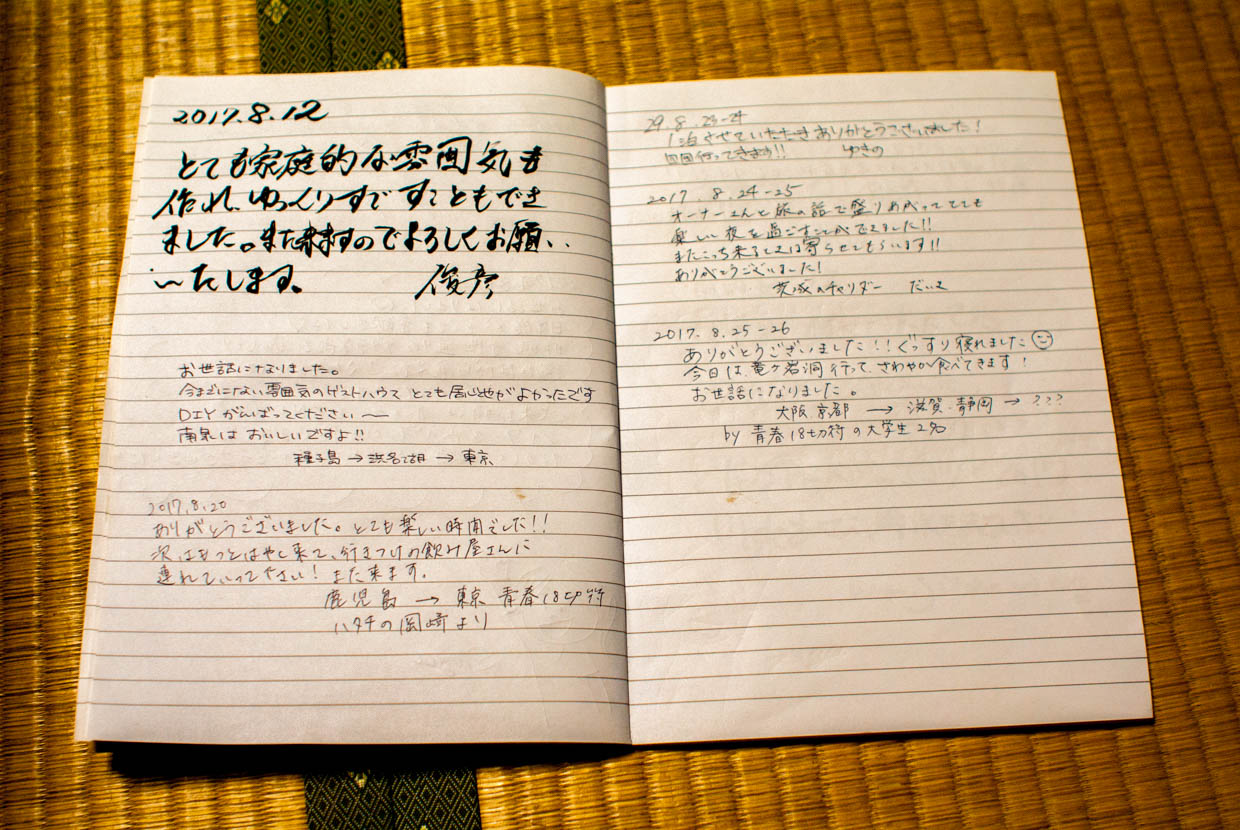 2017.8.12
とても家庭的な雰囲気も
作れ、ゆっくりすごすこともでき
ました。また来ますのでよろしくお願い
いたします。 俊彦
お世話になりました。
今までにない雰囲気のゲストハウス とても居心地がよかったです
DIY がんばってください〜
南泉は おいしいですよ!!
種子島 → 浜名湖 → 東京
2017.8.20
ありがとうございました。とても楽しい時間でした!!
次はもっとはやく来て、行きつけの飲み屋さんに
連れていって下さい! また来ます。
鹿児島 → 東京 青春18切符
ハタチの岡崎より
29.8.23-24
1泊させていただきありがとうございました!
四国行ってきます!! ゆきの
2017.8.24-25
オーナーさんと旅の話で盛りあがってとても
楽しい夜を過ごすことができました!!
またこっち来るときは寄らせてもらいます!!
ありがとうございました!
茨城のチャリダー だいき
2017.8.25-26
ありがとうございました!!ぐっすり寝れました☺
今日は、竜ヶ岩洞行って、さわやか食べてきます!
お世話になりました。
大阪 京都 → 滋賀・静岡 → ???
by 青春18切符の大学生2名